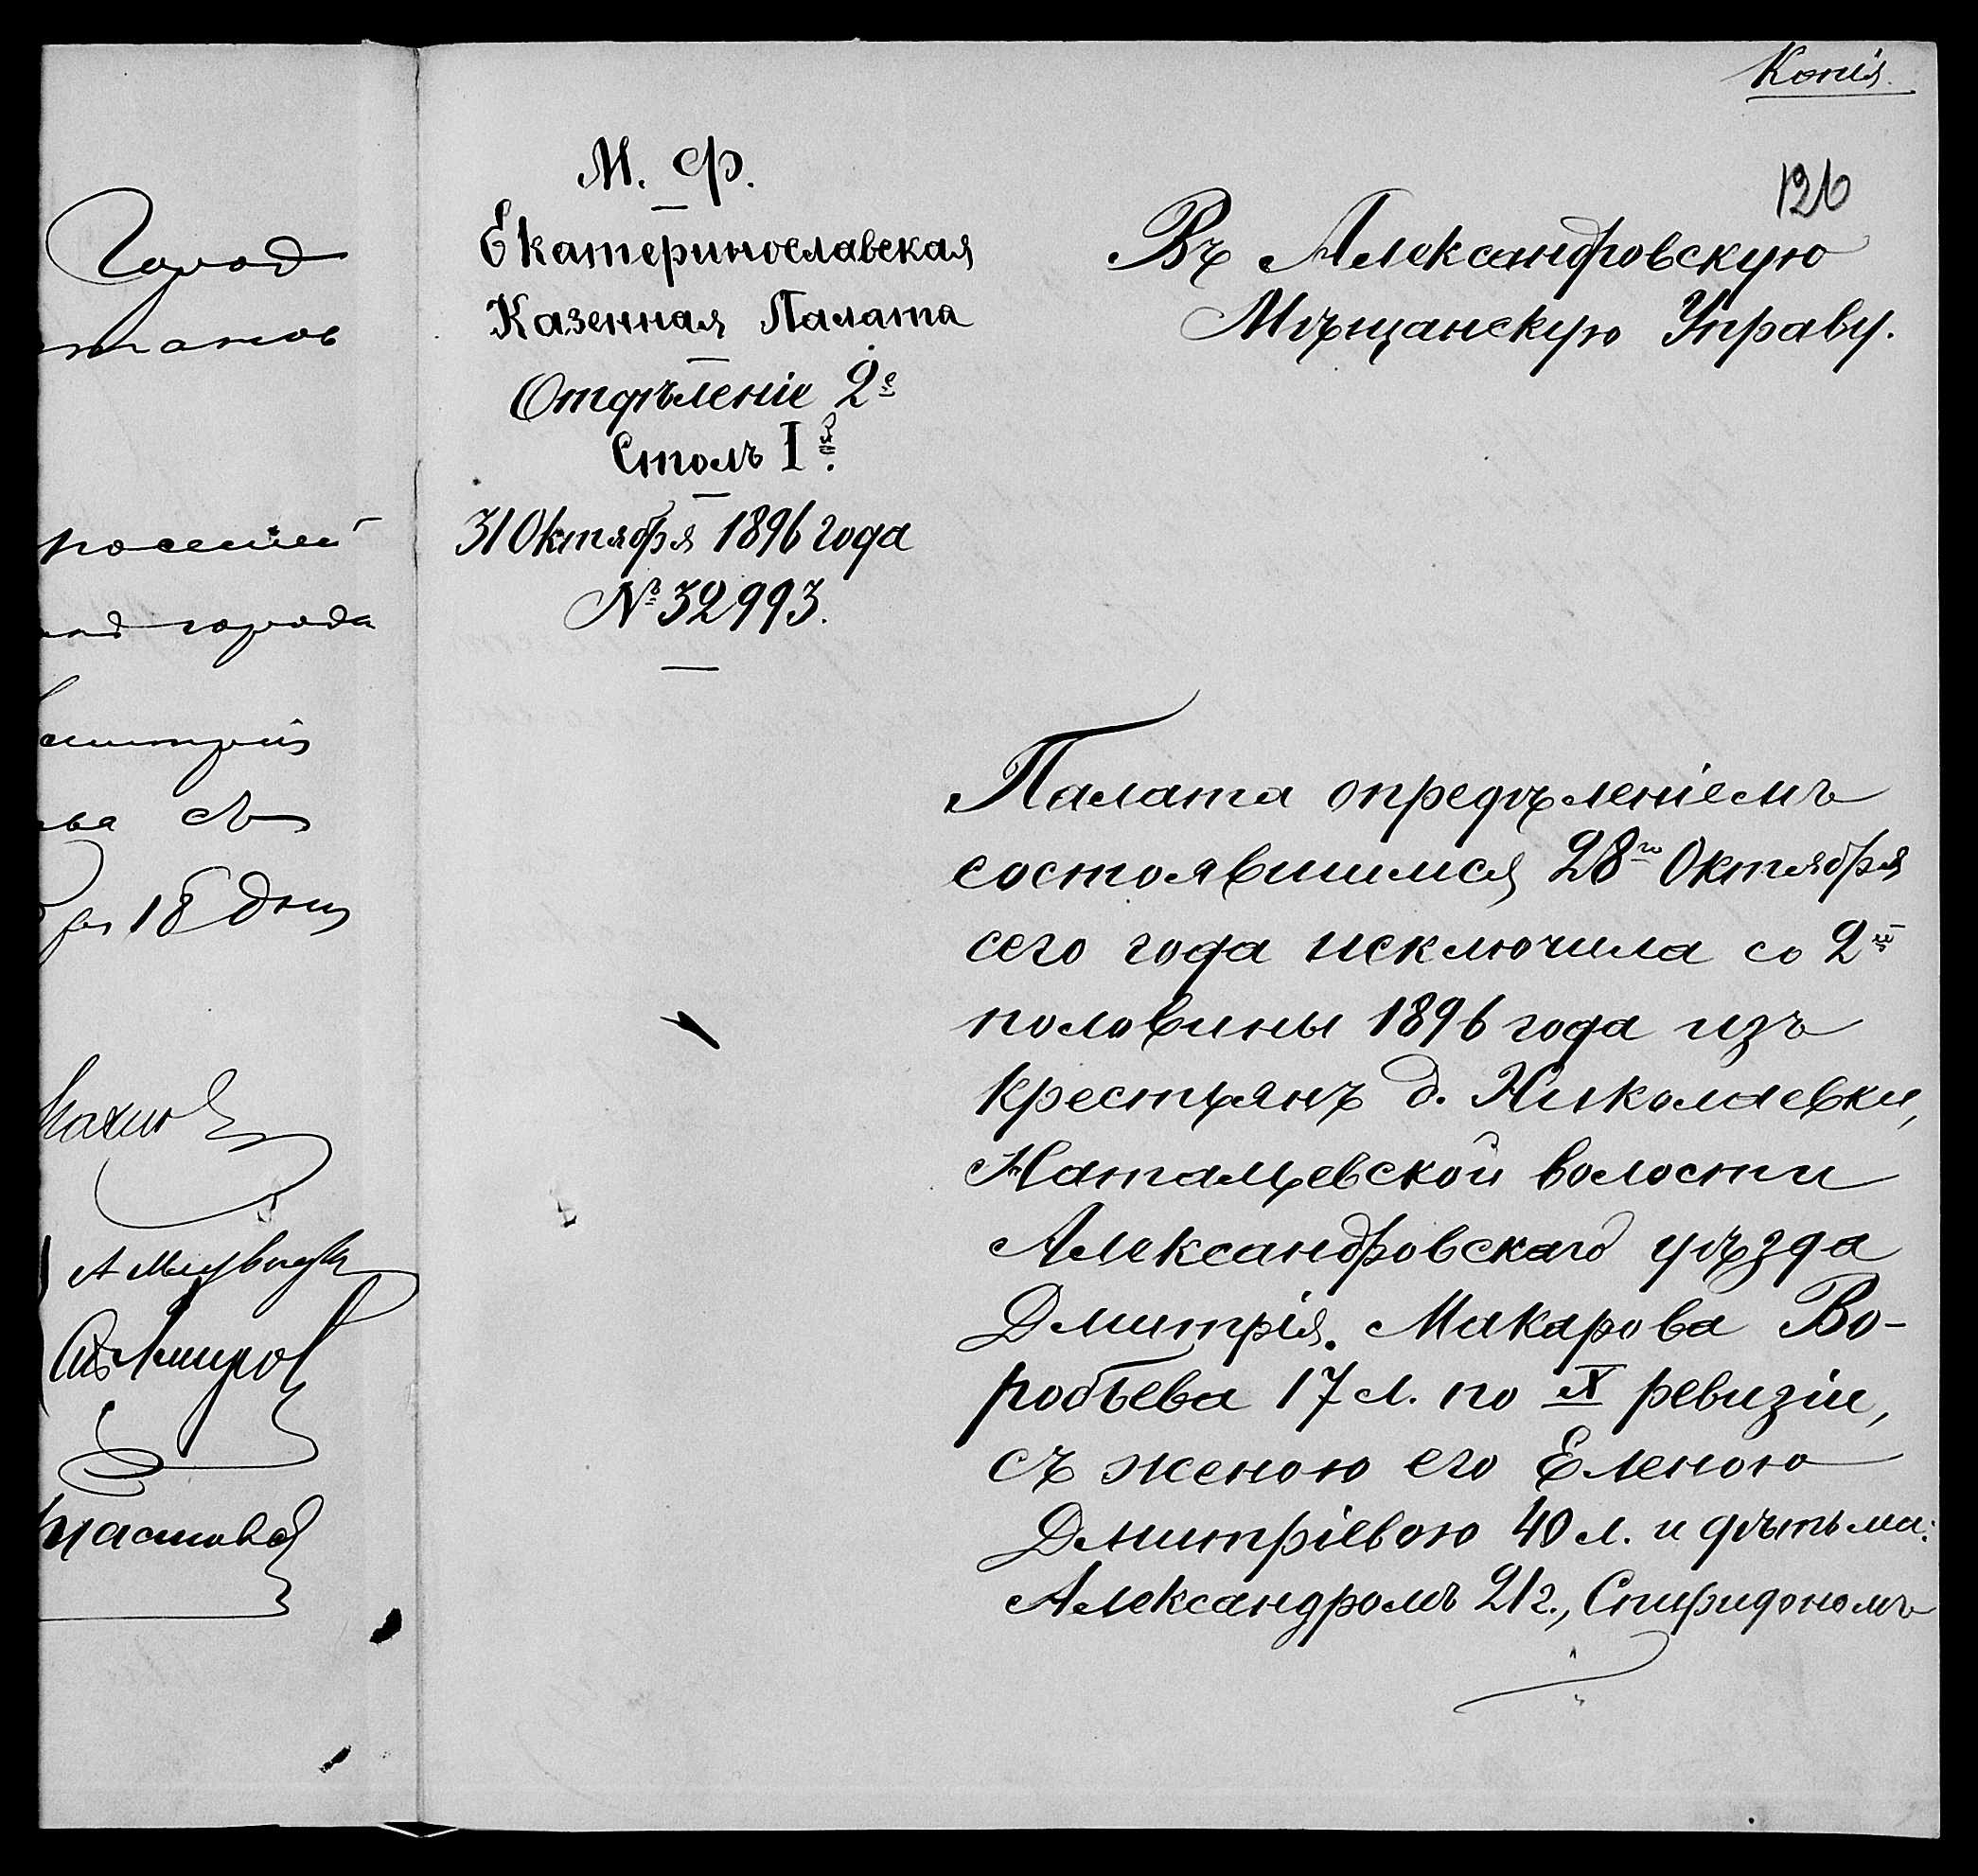 Копія.
126
М. Ф.
Екатеринославская
Казенная Палата
Отдѣленіе 2е
Столъ Iй.
31 Октября 1896 года
№ 32993.
Въ Александровскую
Мѣщанскую Управу.
Палата опредѣленіемъ
состоявшимся 28го Октября
сего года исключила со 2й
половины 1896 года изъ
крестьянъ д. Николаевки,
Натальевской волости
Александровскаго уѣзда
Дмитрія Макарова Во-
робьева 17 л. по X ревизіи,
съ женою его Еленою
Дмитріевою 40 л. и дѣтьми:
Александромъ 21 г., Спиридономъ
Город
города
18 дня